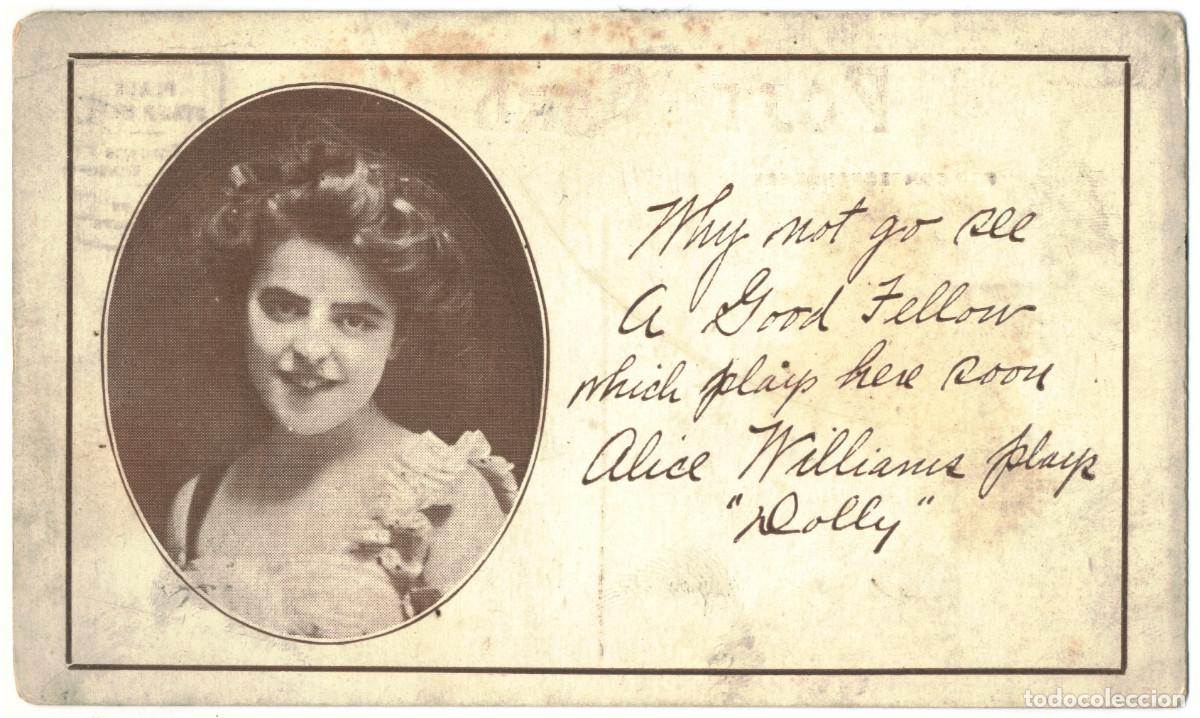 Why not go see
A Good Fellow
which plays here soon
Alice Williams plays
"Dolly"
todocoleccion